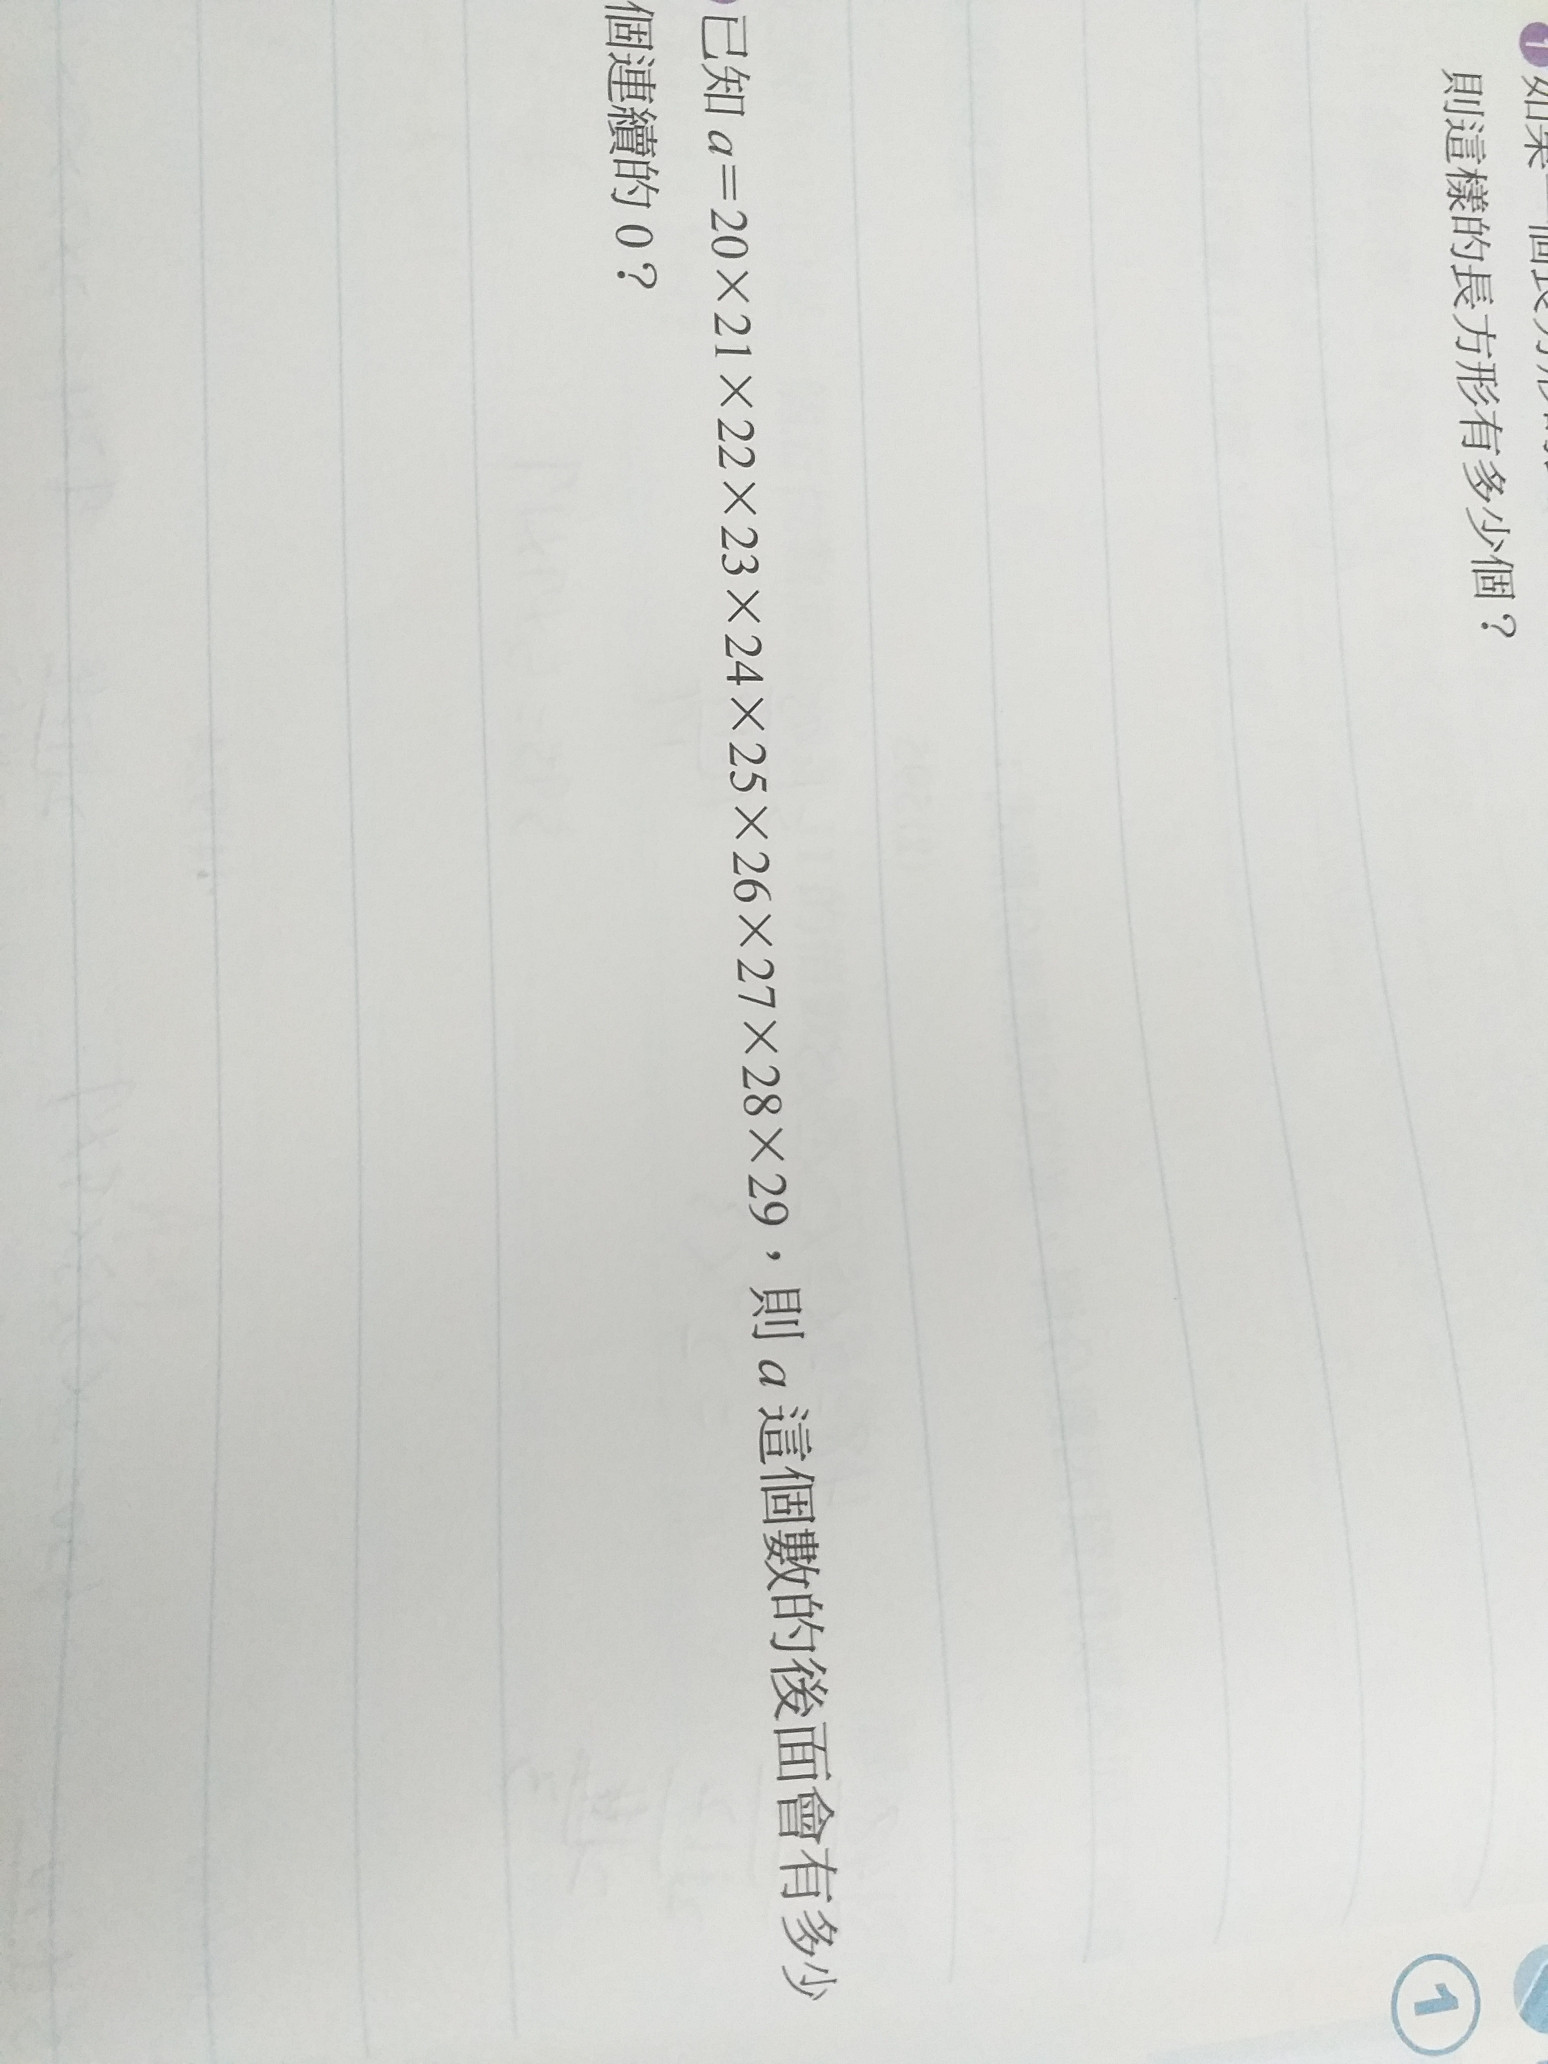 1 如果一個長方形的
則這樣的長方形有多少個？
已知 a=20×21×22×23×24×25×26×27×28×29，則 a 這個數的後面會有多少
個連續的 0？
1